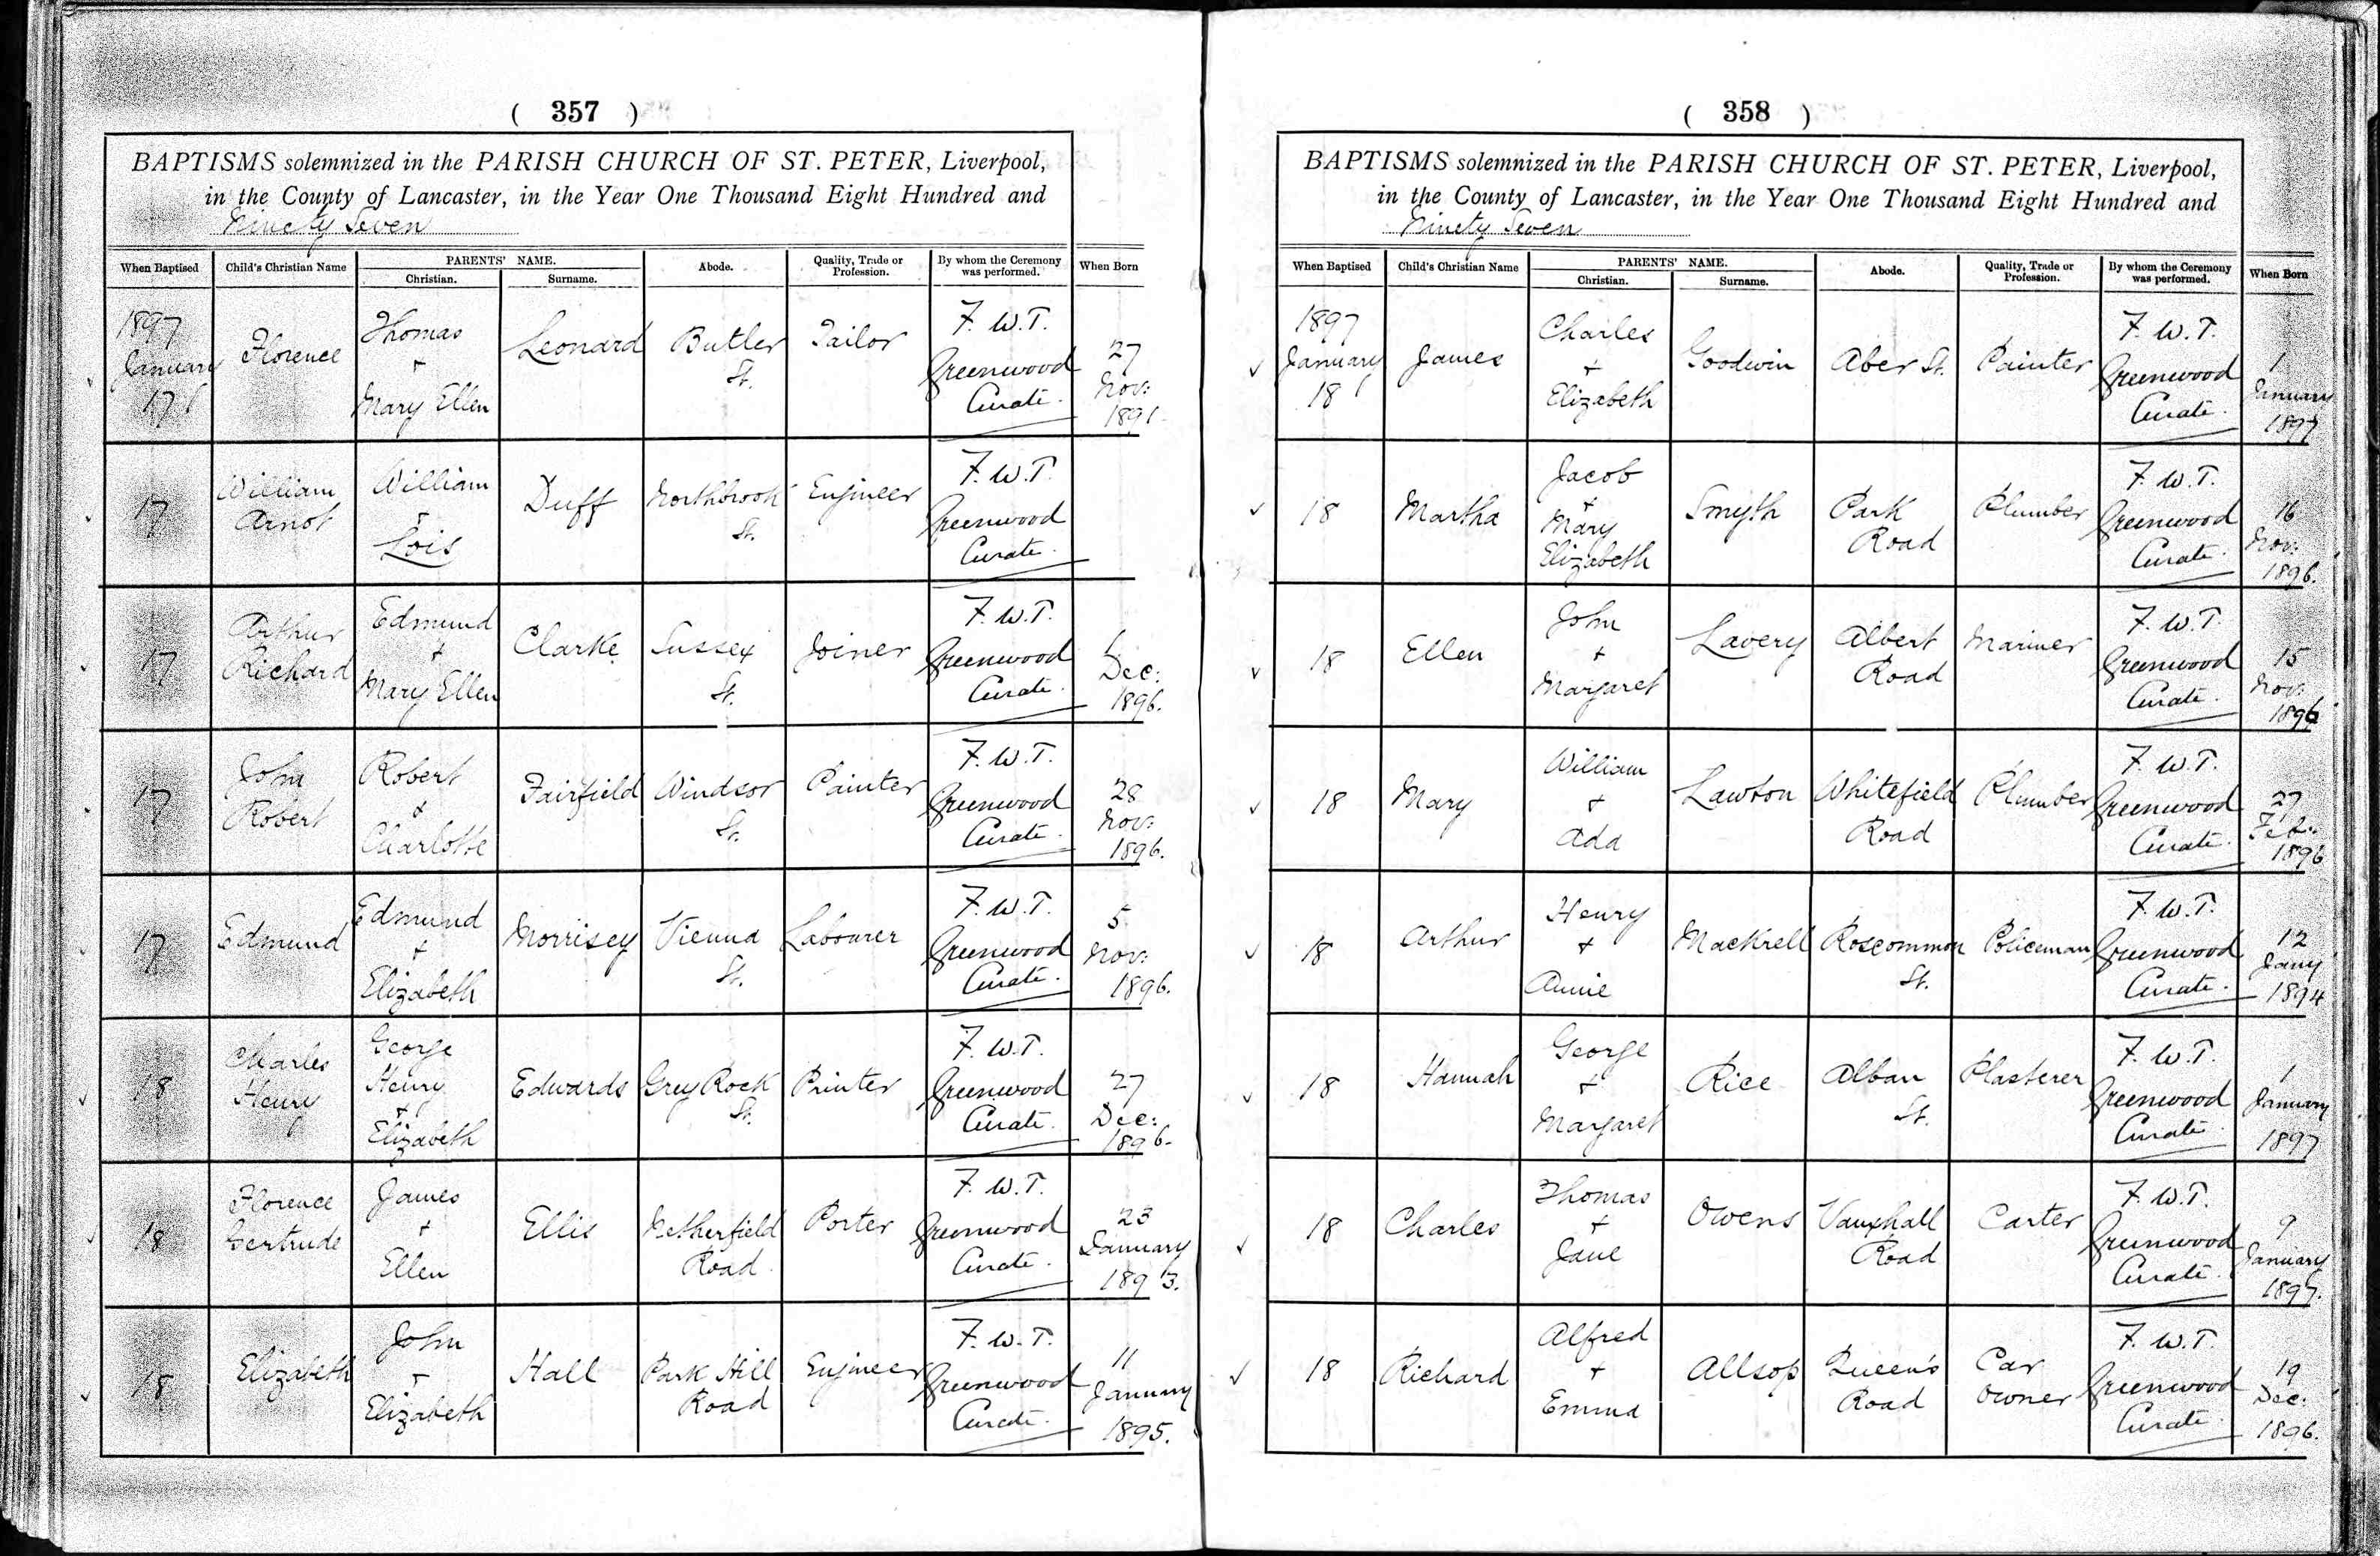 ( 357 )
BAPTISMS solemnized in the PARISH CHURCH OF ST. PETER, Liverpool,
in the County of Lancaster, in the Year One Thousand Eight Hundred and
Ninety Seven
When Baptised Child's Christian Name PARENTS' NAME. Christian. Surname. Abode. Quality, Trade or Profession. By whom the Ceremony was performed. When Born
1897 January 17 Florence Thomas + Mary Ellen Leonard Butler St. Tailor F. W. T. Greenwood Curate. 27 Nov: 1891
17 William Arnot William + Lois Duff Northbrook St. Engineer F. W. T. Greenwood Curate.
17 Arthur Richard Edmund + Mary Ellen Clarke Sussex St. Joiner F. W. T. Greenwood Curate. Dec: 1896.
17 John Robert Robert & Charlotte Fairfield Windsor St. Painter F. W. T. Greenwood Curate. 28 Nov: 1896.
17 Edmund Edmund + Elizabeth Morrisey Vienna St. Labourer F. W. T. Greenwood Curate. 5 Nov: 1896.
18 Charles Henry George Henry + Elizabeth Edwards Grey Rock St. Printer F. W. T. Greenwood Curate. 27 Dec: 1896.
18 Florence Gertrude James + Ellen Ellis Netherfield Road. Porter F. W. T. Greenwood Curate. 23 January 1893.
18 Elizabeth John + Elizabeth Hall Park Hill Road Engineer F. W. T. Greenwood Curate. 11 January 1895.
( 358 )
BAPTISMS solemnized in the PARISH CHURCH OF ST. PETER, Liverpool,
in the County of Lancaster, in the Year One Thousand Eight Hundred and
Ninety Seven
When Baptised Child's Christian Name PARENTS' NAME. Christian. Surname. Abode. Quality, Trade or Profession. By whom the Ceremony was performed. When Born
1897 January 18 James Charles + Elizabeth Goodwin Aber St. Painter F. W. T. Greenwood Curate. 1 January 1897
18 Martha Jacob + Mary Elizabeth Smyth Park Road Plumber F. W. T. Greenwood Curate. 16 Nov: 1896.
18 Ellen John + Margaret Lavery Albert Road Mariner F. W. T. Greenwood Curate. 15 Nov: 1896
18 Mary William + Ada Lawton Whitefield Road Plumber F. W. T. Greenwood Curate. 27 Feb: 1896
18 Arthur Henry + Annie Mackrell Roscommon St. Policeman F. W. T. Greenwood Curate. 12 Jany 1894
18 Hannah George + Margaret Rice Alban St. Plasterer F. W. T. Greenwood Curate. 1 January 1897
18 Charles Thomas + Jane Owens Vauxhall Road Carter F. W. T. Greenwood Curate. 9 January 1897.
18 Richard Alfred + Emma Allsop Queen's Road Car Owner F. W. T. Greenwood Curate. 19 Dec: 1896.